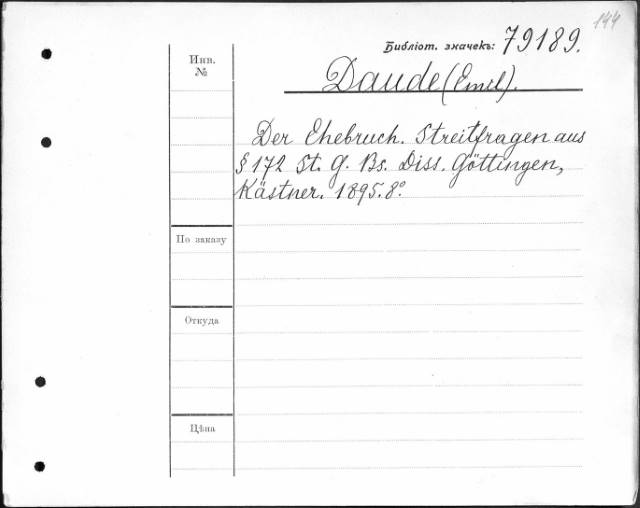 144
Библіот. значекъ: 79189.
Инв.
№
Daude (Emil).
Der Ehebruch. Streitfragen aus
§ 172 St. G. Bs. Diss. Göttingen,
Kästner. 1895. 8°.
По заказу
Откуда
Цѣна